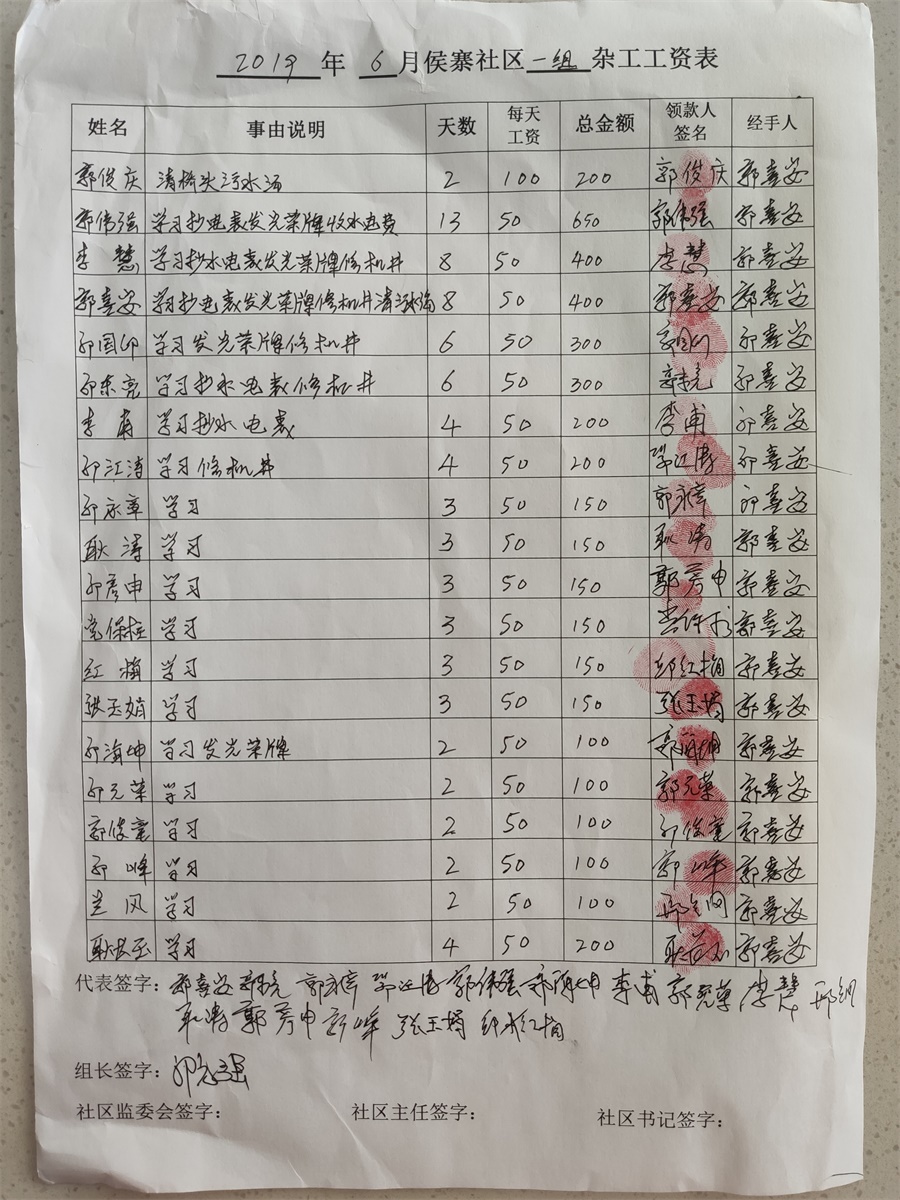 2019 年 6 月侯寨社区 一组 杂工工资表
姓名 事由说明 天数 每天工资 总金额 领款人签名 经手人
郭俊庆 清桥头污水沟 2 100 200 郭俊庆 郭喜安
郭伟强 学习抄电表发光荣牌收水电费 13 50 650 郭伟强 郭喜安
李慧 学习抄水电表发光荣牌修机井 8 50 400 李慧 郭喜安
郭喜安 学习抄电表发光荣牌修机井清 8 50 400 郭喜安 郭喜安
郭国卯 学习发光荣牌修机井 6 50 300 郭喜安
郭东亮 学习抄水电表修机井 6 50 300 郭喜安
李甫 学习抄水电表 4 50 200 李甫 郭喜安
郭江涛 学习修机井 4 50 200 郭江涛 郭喜安
郭永章 学习 3 50 150 郭喜安
耿涛 学习 3 50 150 耿涛 郭喜安
郭彦申 学习 3 50 150 郭喜安
党保柱 学习 3 50 150 郭喜安
红梅 学习 3 50 150 邱红梅 郭喜安
张玉娟 学习 3 50 150 张玉娟 郭喜安
郭海坤 学习发光荣牌 2 50 100 郭海坤 郭喜安
郭元荣 学习 2 50 100 郭元荣 郭喜安
郭俊董 学习 2 50 100 郭俊董 郭喜安
郭峰 学习 2 50 100 郭峰 郭喜安
兰风 学习 2 50 100 郭喜安
学习 4 50 200 郭喜安
代表签字: 郭喜安 郭江涛 郭伟强 郭海坤 李甫 郭元荣 李慧
耿涛 郭峰 张玉娟 邱红梅
组长签字:
社区监委会签字: 社区主任签字: 社区书记签字: